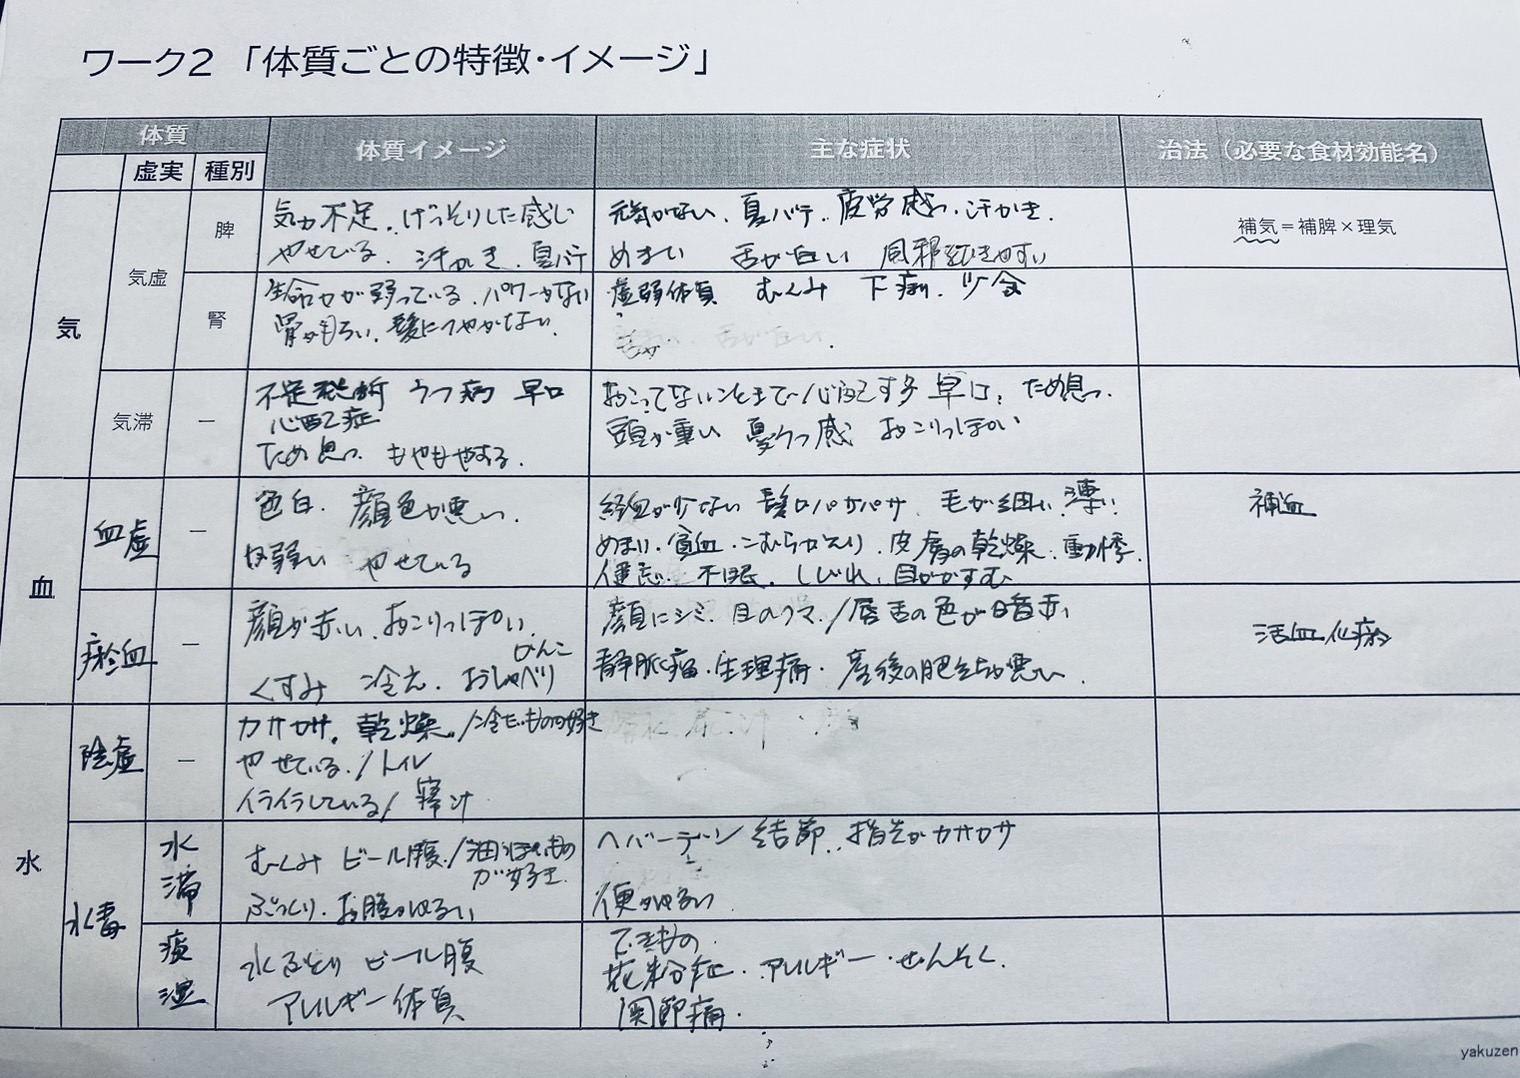 ワーク2 「体質ごとの特徴・イメージ」
体質
虚実 種別
体質イメージ
主な症状
治法（必要な食材効能名）
気
気虚
脾
気力不足、げっそりした感じ
やせている、汗かき、夏バテ
元気がない、夏バテ、疲労感、汗かき、
めまい 舌が白い 風邪をひきやすい
補気＝補脾×理気
腎
生命力が弱っている、パワーがない
骨がもろい、髪につやがない、
虚弱体質 むくみ 下痢、少食
舌が白い、
気滞
－
不定愁訴 うつ病 早口
心配症
ため息、もやもやする、
おこってないことまで心配する 早口、ため息、
頭が重い 憂うつ感 おこりっぽい
血
血虚
－
色白、顔色が悪い、
体弱い やせている
経血が少ない 髪パサパサ 毛が細い、薄い
めまい、貧血、こむらがえり、皮膚の乾燥、動悸、
健忘、不眠、しびれ、目がかすむ
補血
瘀血
－
顔が赤い、おこりっぽい、
びんこ
くすみ 冷え、おしゃべり
顔にシミ、目のクマ、/唇舌の色が暗赤い
静脈瘤、生理痛、産後の肥立ち悪い、
活血化瘀
水
陰虚
－
カサカサ、乾燥、/冷たいもの好き
やせている、/トイレ
イライラしている/寝汗
水毒
水滞
むくみ ビール腹、/油っぽいもの
が好き、
ぷっくり、お腹がゆるい
ヘバーデン結節、指先がカサカサ
便がゆるい
痰湿
水ぶとり ビール腹
アレルギー体質
できもの、
花粉症、アレルギー、ぜんそく、
関節痛、
yakuzen